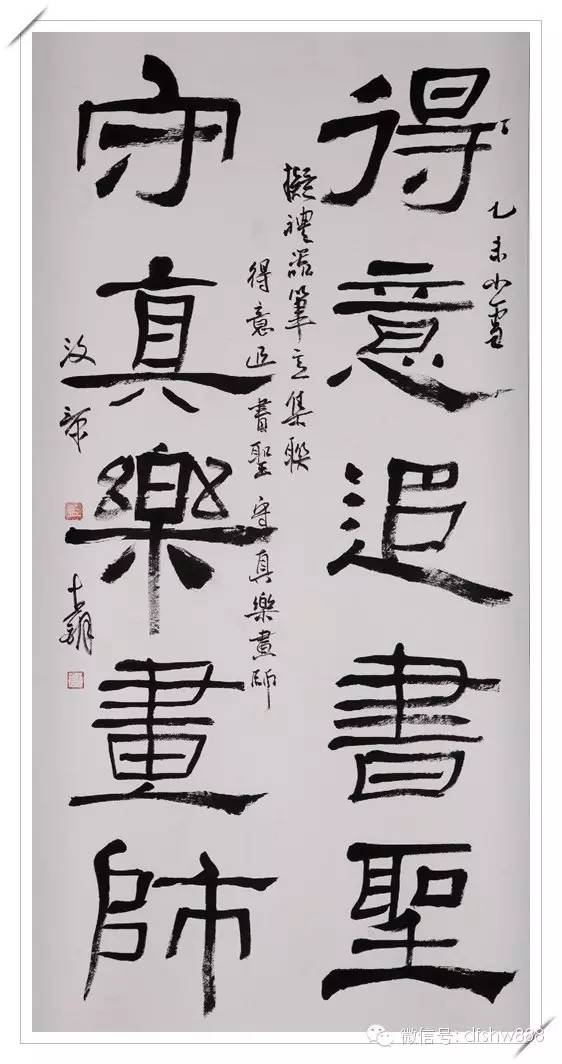 得意追書聖
乙未小雪
守真樂畫師
擬禮器筆意集聯
得意追書聖 守真樂畫師
微信号: dfshw888